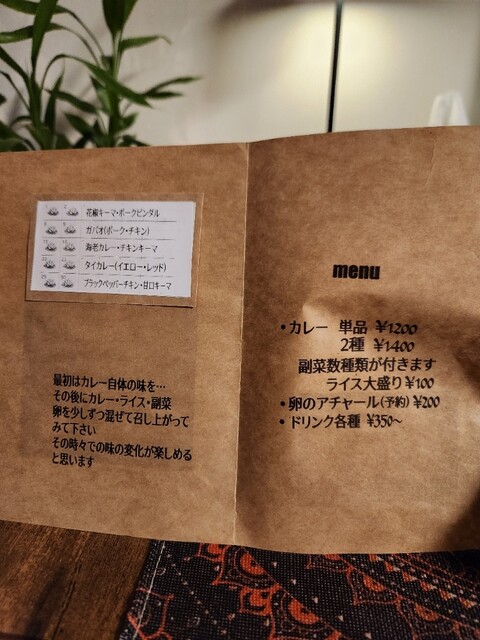 花椒キーマ・ポークビンダル
ガパオ(ポーク・チキン)
海老カレー・チキンキーマ
タイカレー(イエロー・レッド)
ブラックペッパーチキン・甘口キーマ
最初はカレー自体の味を…
その後にカレー・ライス・副菜
卵を少しずつ混ぜて召し上がって
みて下さい
その時々での味の変化が楽しめる
と思います
menu
・カレー 単品 ¥1200
2種 ¥1400
副菜数種類が付きます
ライス大盛り ¥100
・卵のアチャール(予約) ¥200
・ドリンク各種 ¥350~